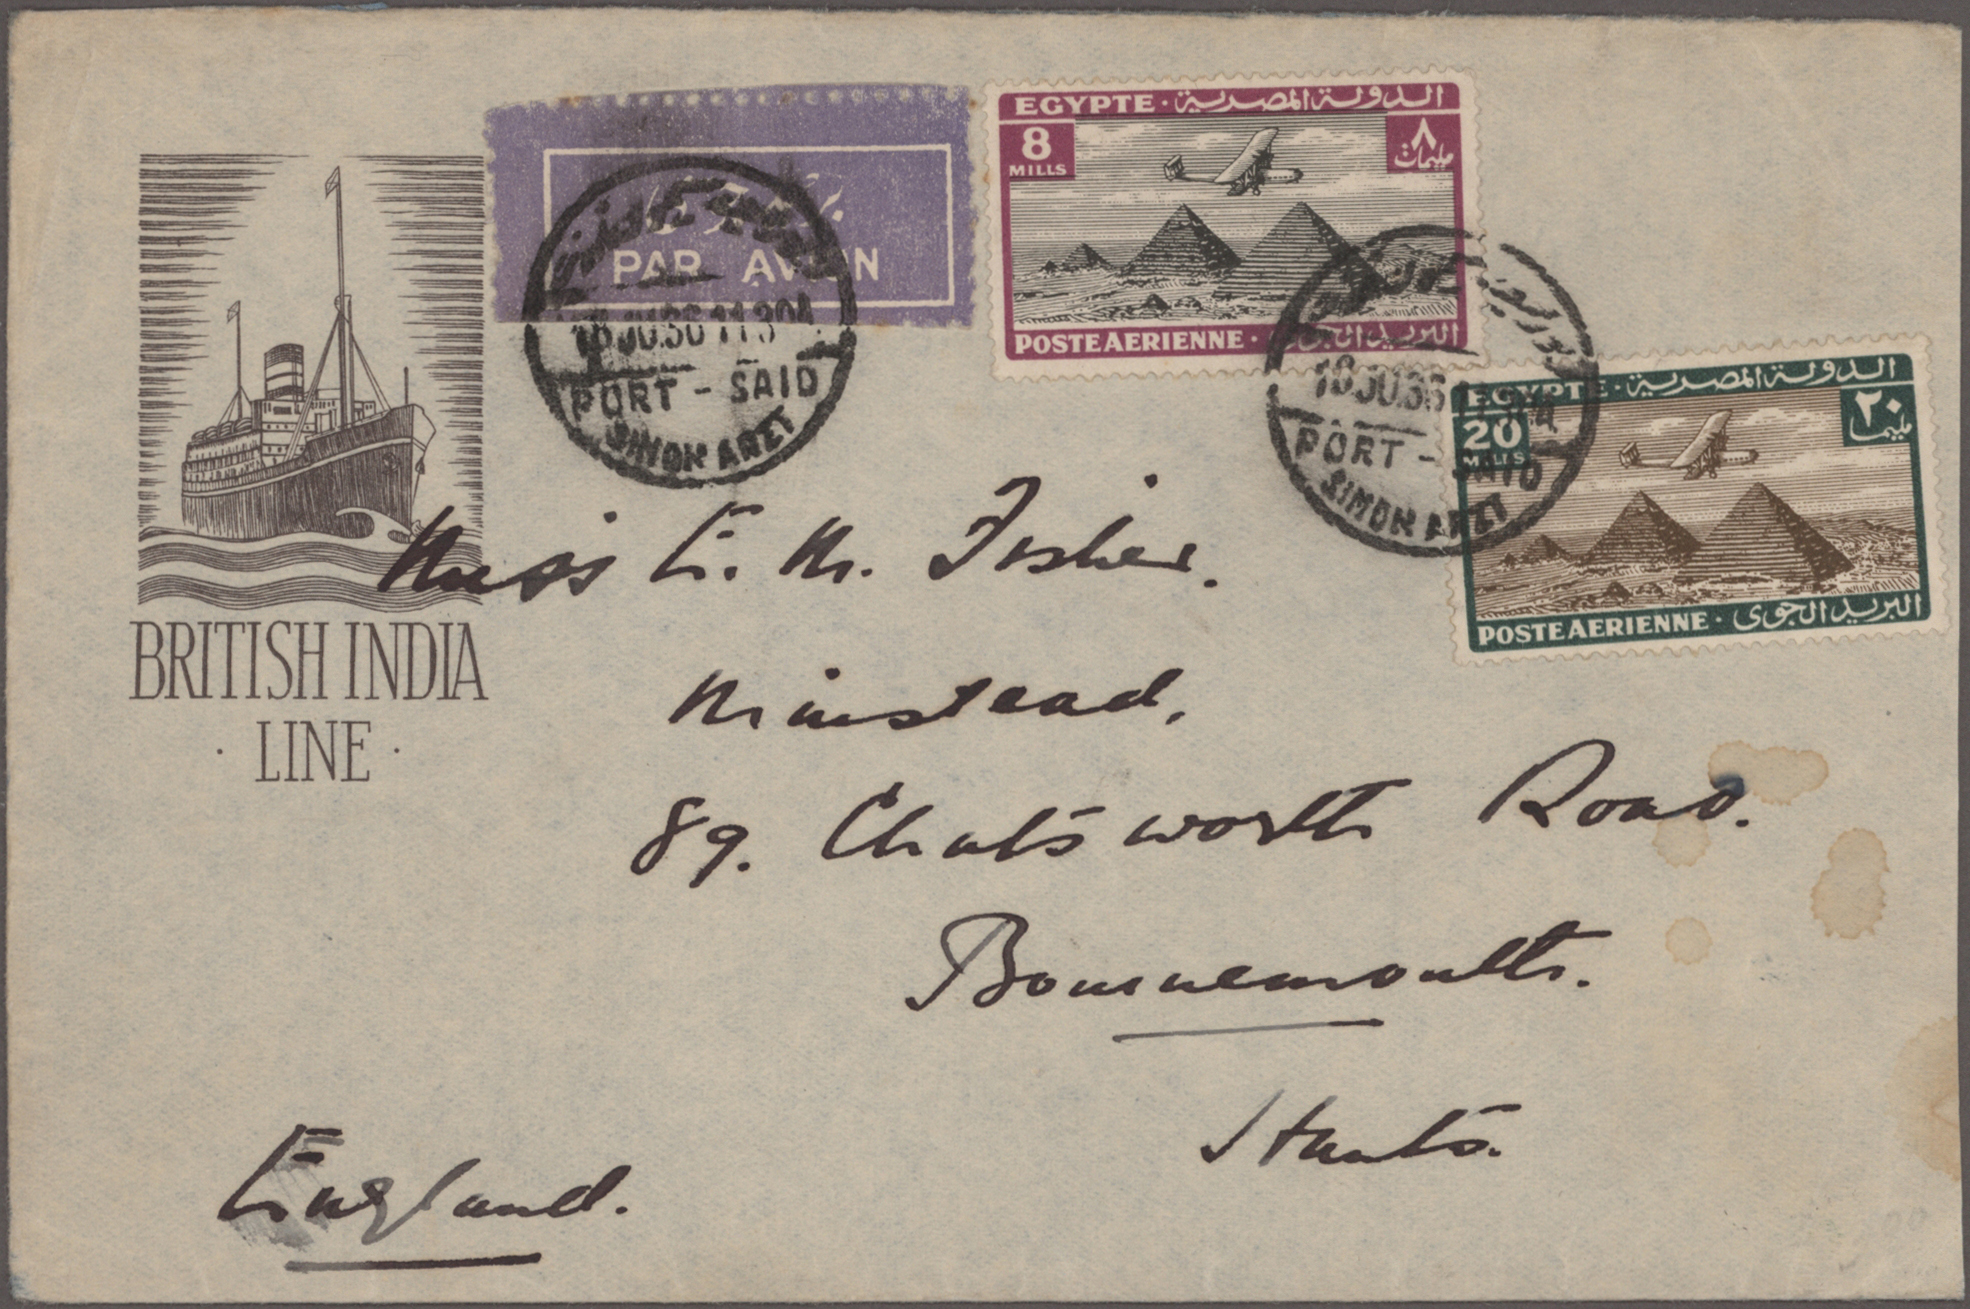 EGYPTE · الدولة المصرية
8
MILLS
٨
مليمات
POSTE AERIENNE · البريد الجوى
PAR AVION
18 JU.36 11.30A
PORT - SAID
SIMON ARZT
18 JU.36 11
PORT - SAID
SIMON ARZT
EGYPTE · الدولة المصرية
20
MILLS
٢٠
POSTE AERIENNE · البريد الجوى
BRITISH INDIA
· LINE ·
Miss E. M. Fisher.
Minstead,
89. Chatsworth Road.
Bournemouth.
Hants.
England.